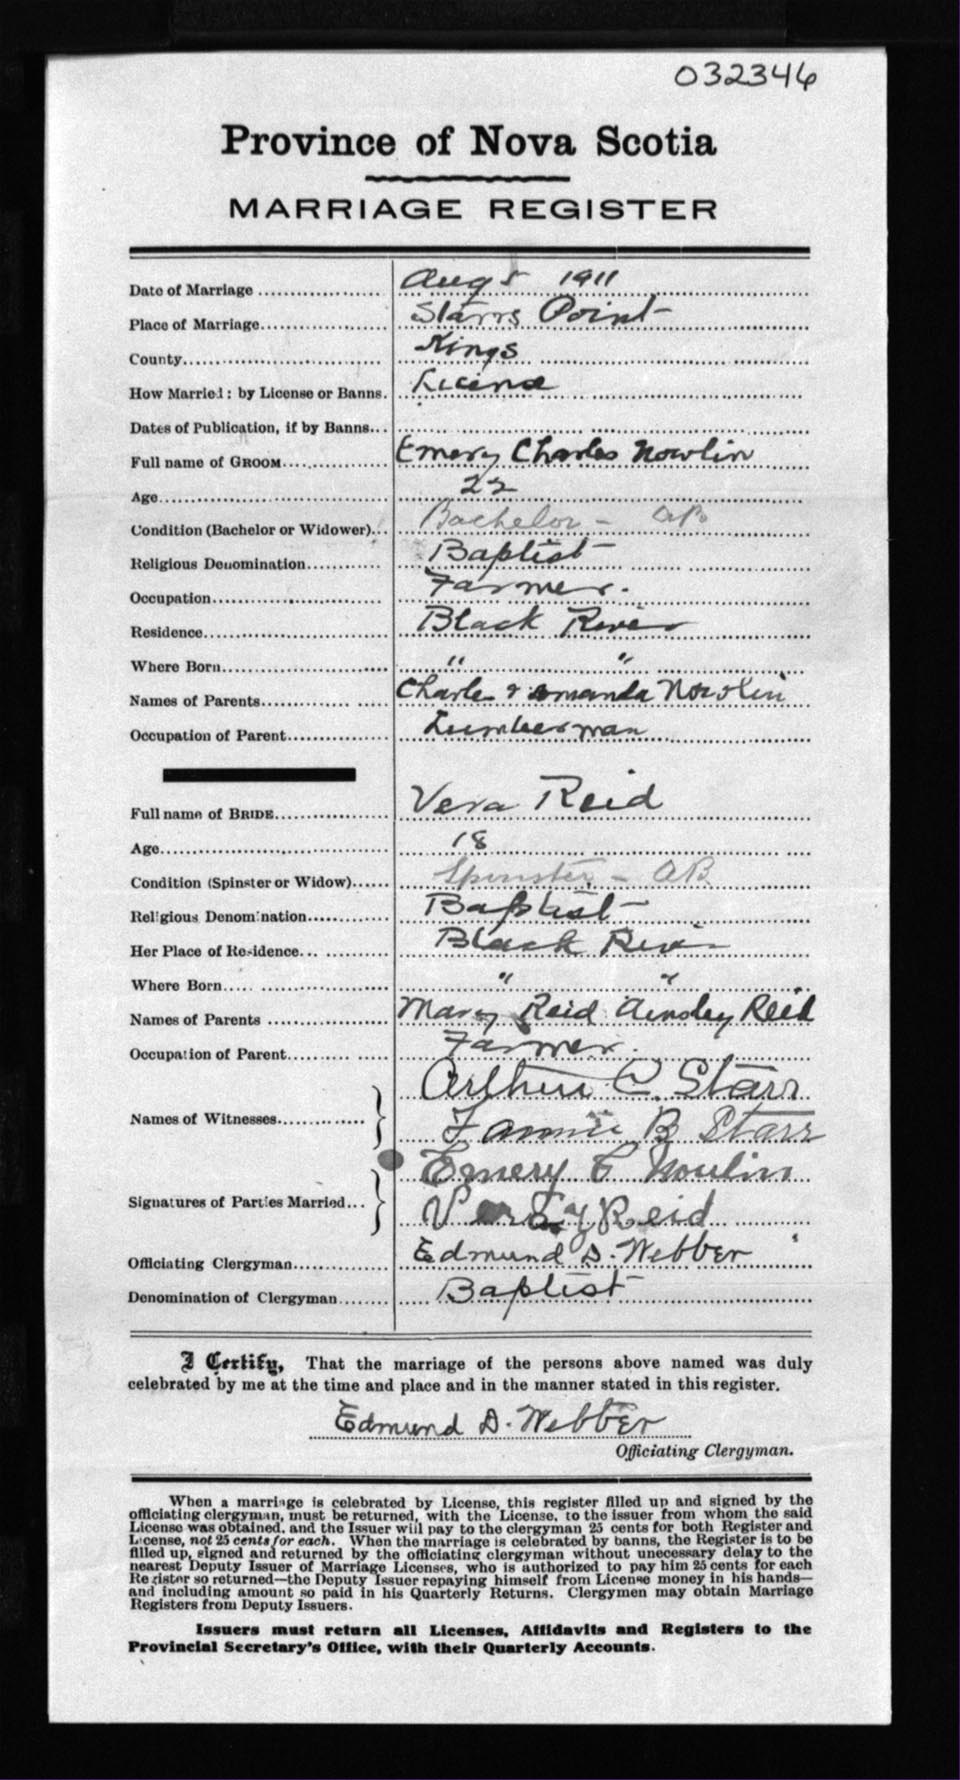 032346
Province of Nova Scotia
MARRIAGE REGISTER
Date of Marriage Aug 5 1911
Place of Marriage Starrs Point
County Kings
How Married: by License or Banns. License
Dates of Publication, if by Banns
Full name of GROOM Emery Charles Nowlin
Age 22
Condition (Bachelor or Widower) Bachelor - AB
Religious Denomination Baptist
Occupation Farmer.
Residence Black River
Where Born " "
Names of Parents Charles & Amanda Nowlin
Occupation of Parent Lumberman
Full name of BRIDE Vera Reid
Age 18
Condition (Spinster or Widow) Spinster - AB
Religious Denomination Baptist
Her Place of Residence Black River
Where Born " "
Names of Parents Mary Reid Ainsley Reid
Occupation of Parent Farmer.
Arthur C. Starr
Names of Witnesses
Fannie B Starr
Emery C Nowlin
Signatures of Parties Married
Reid
Officiating Clergyman Edmund D. Webber
Denomination of Clergyman Baptist
I Certify, That the marriage of the persons above named was duly
celebrated by me at the time and place and in the manner stated in this register.
Edmund D. Webber
Officiating Clergyman.
When a marriage is celebrated by License, this register filled up and signed by the
officiating clergyman, must be returned, with the License, to the issuer from whom the said
License was obtained, and the Issuer will pay to the clergyman 25 cents for both Register and
License, not 25 cents for each. When the marriage is celebrated by banns, the Register is to be
filled up, signed and returned by the officiating clergyman without unnecessary delay to the
nearest Deputy Issuer of Marriage Licenses, who is authorized to pay him 25 cents for each
Register so returned—the Deputy Issuer repaying himself from License money in his hands—
and including amount so paid in his Quarterly Returns. Clergymen may obtain Marriage
Registers from Deputy Issuers.
Issuers must return all Licenses, Affidavits and Registers to the
Provincial Secretary's Office, with their Quarterly Accounts.